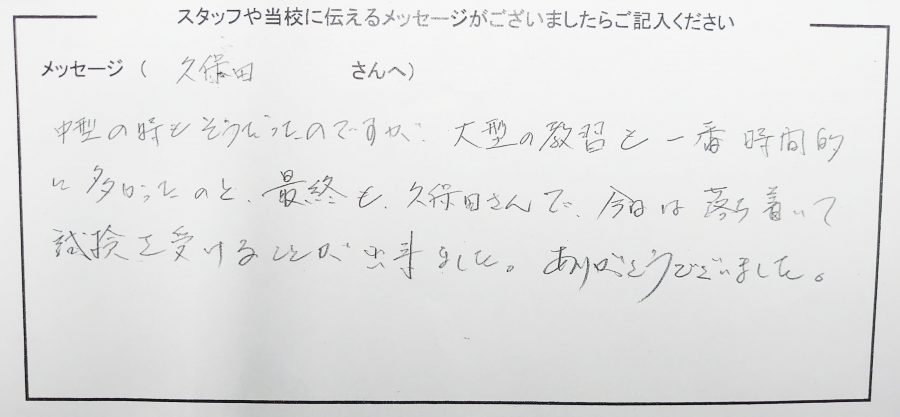 スタッフや当校に伝えるメッセージがございましたらご記入ください
メッセージ（ 久保田 さんへ）
中型の時もそうだったのですが、大型の教習も一番時間的
に多かったのと、最終も、久保田さんで、今日は落ち着いて
試験を受けることが出来ました。ありがとうございました。